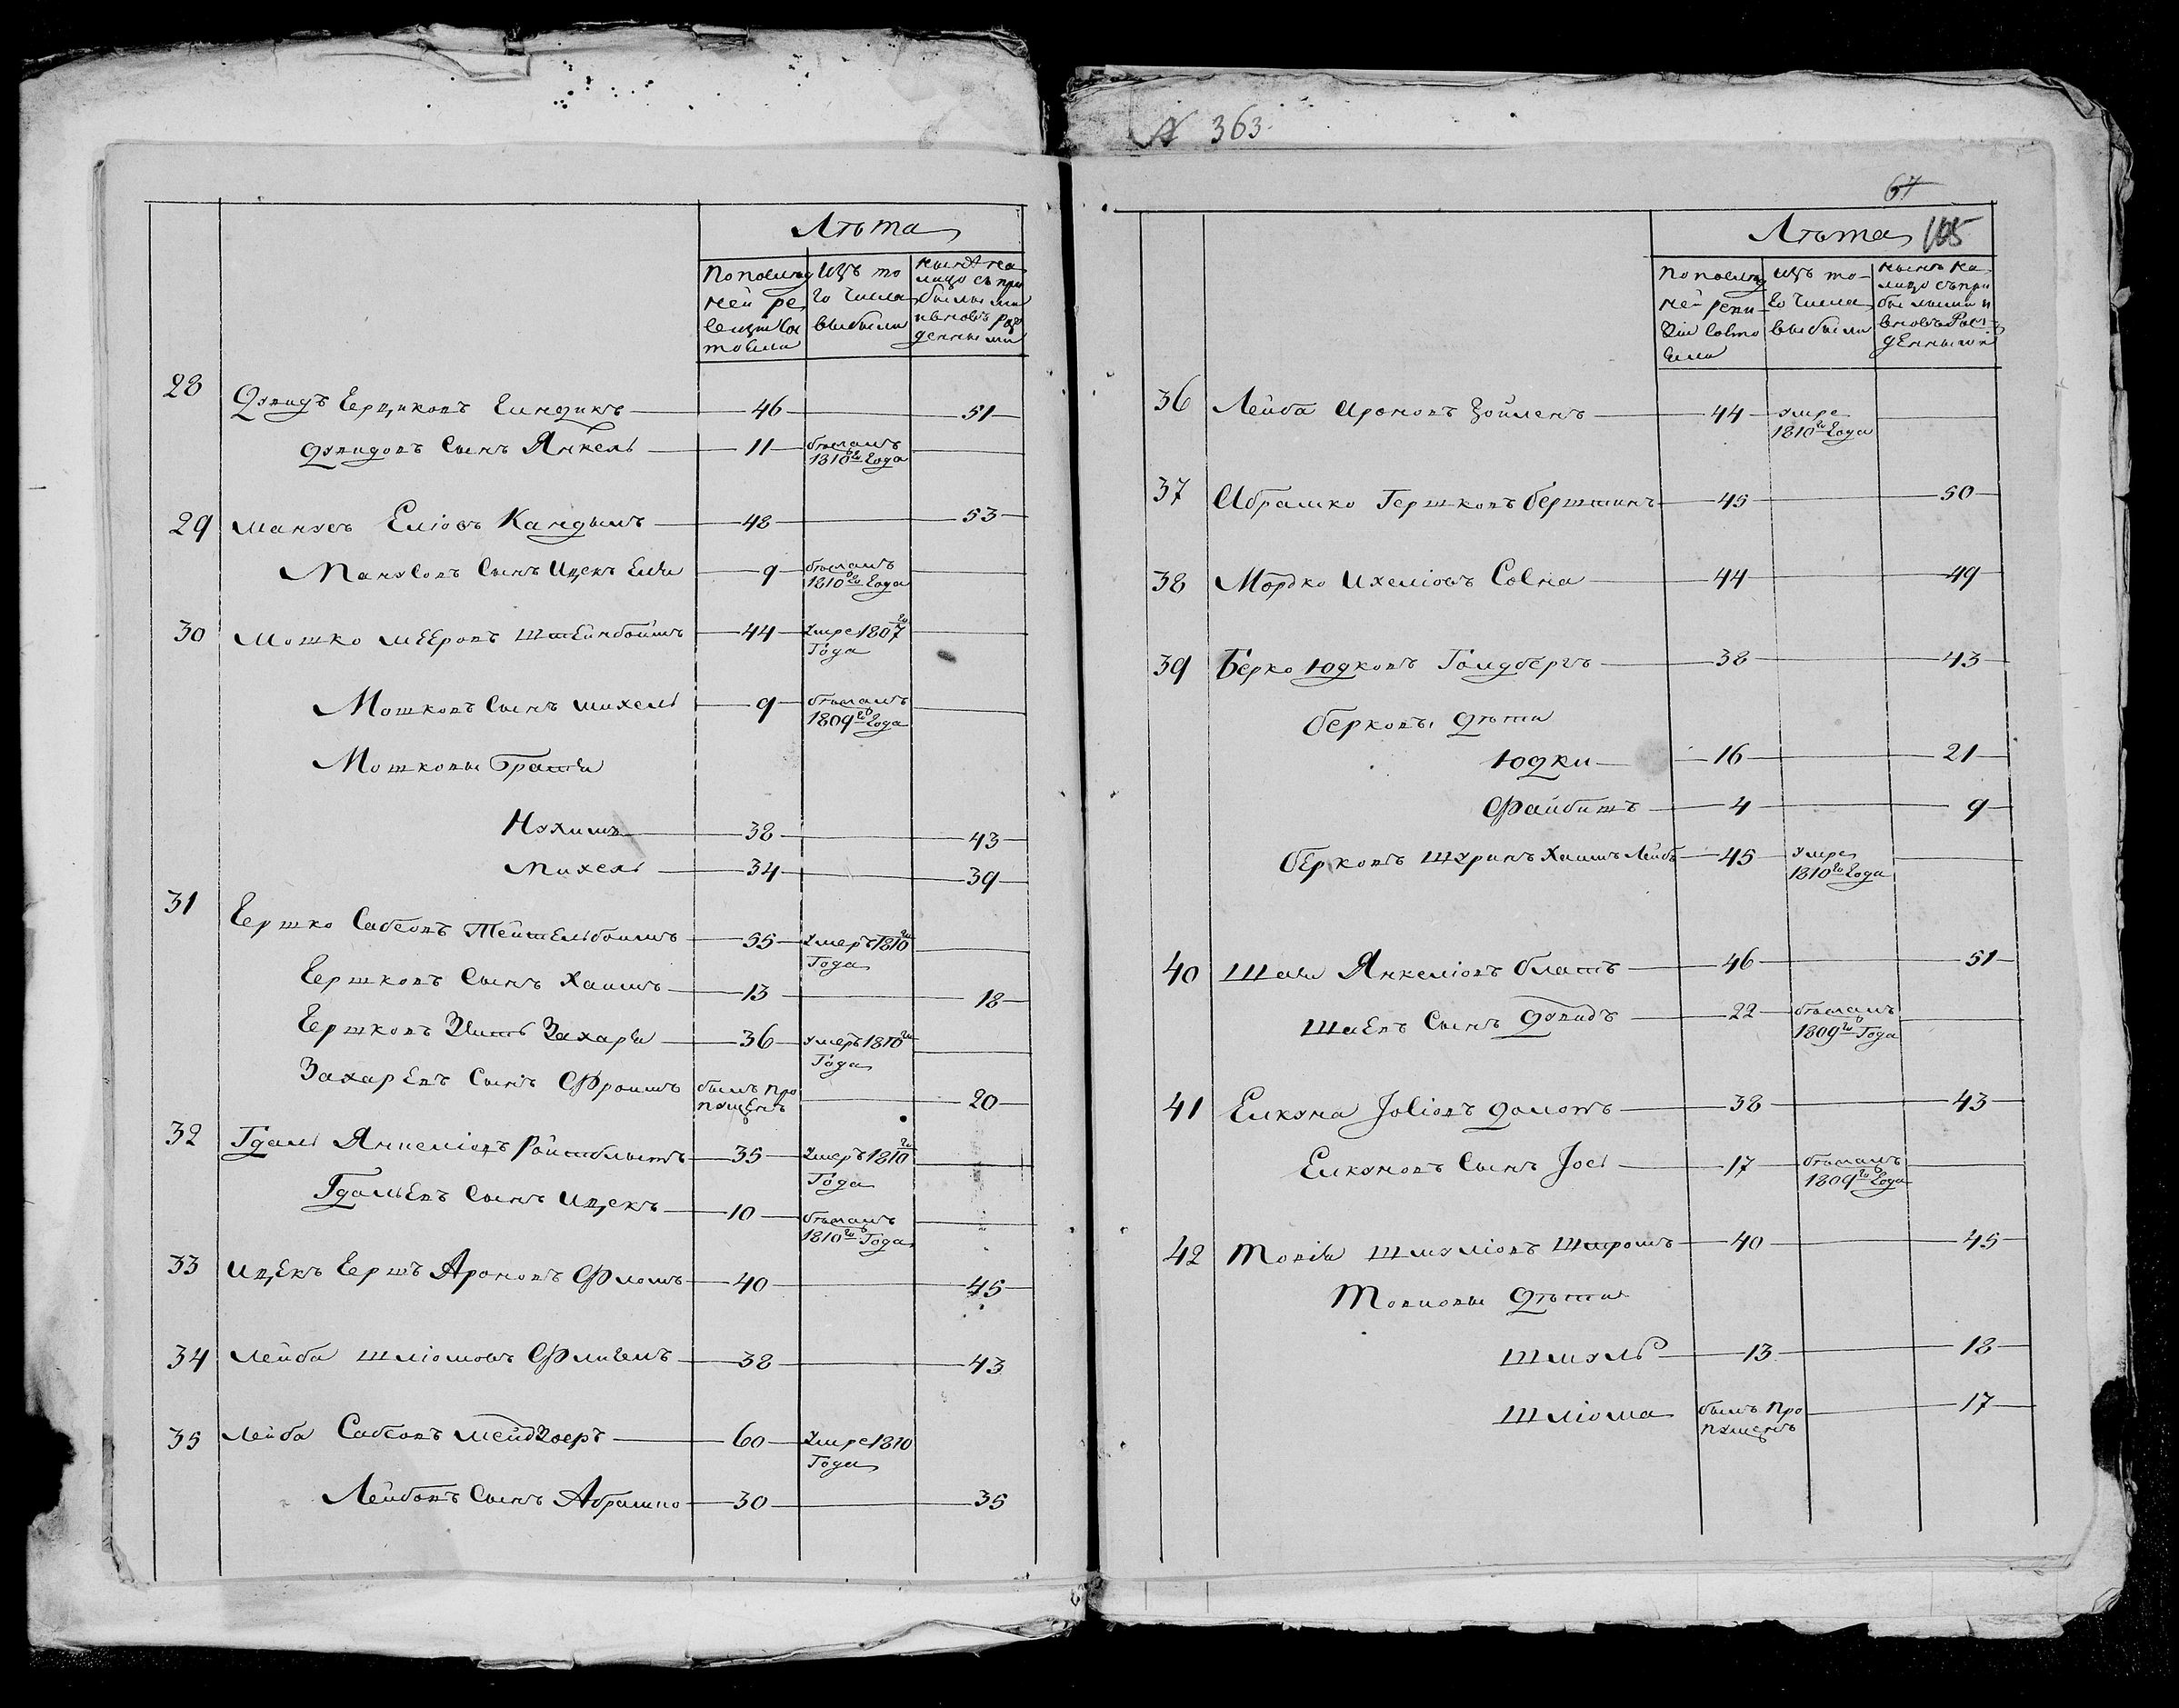 Лѣта
По послед ней ре визіи со стояли
Изъ то го числа выбыли
Нынѣ на лицо съ при былыми и вновь рож денными
28 Дувидъ Ерщиковъ Ендикъ 46 51
Дувидовъ Сынъ Янкель 11 бѣжалъ 1810го Года
29 Манусъ Еліовъ Кандылъ 48 53
Манусовъ Сынъ Ицекъ Ели 9 бѣжалъ 1810го Года
30 Мошко Мееровъ Штейнбоимъ 44 Умре 1807го Года
Мошковъ Сынъ Михель 9 бѣжалъ 1809го Года
Мошковы Братьи
Нухимъ 38 43
Михель 34 39
31 Гершко Сабсовъ Тейтельбоимъ 55 Умеръ 1810го Года
Гершковъ Сынъ Хаимъ 13 18
Гершковъ Зять Захарья 36 Умеръ 1810го Года
Захаревъ Сынъ Фроимъ былъ про пущенъ 20
32 Гдаль Янкеліовъ 35 Умеръ 1810го Года
Гдальевъ Сынъ Ицекъ 10 бѣжалъ 1810го Года
33 Ицекъ Гершъ Ароновъ 40 45
34 Лейба Шліомовъ 38 43
35 Лейба Сабсовъ 60 Умре 1810 Года
Лейбовъ Сынъ Абрамко 30 35
№ 363.
67
105
Лѣта
По послед ней реви зіи состо яли
Изъ то го числа выбыли
Нынѣ на лицо съ при былыми и вновь рож денными
36 Лейба Ароновъ Цойленъ 44 умре 1810го Года
37 Абрамко Гершковъ Берштинъ 45 50
38 Мордко Ихеліовъ Совна 44 49
39 Берко Юдковъ Голдбергъ 38 43
Берковы дѣти
Юдки 16 21
Файбишъ 4 9
Берковъ Шуринъ Хаимъ Лейбъ 45 Умре 1810го Года
40 Шаи Янкеліовъ Блатъ 46 51
Шаевъ Сынъ Дувидъ 22 бѣжалъ 1809го Года
41 Елкуна Іосіовъ 38 43
Елкуновъ Сынъ Іось 17 бѣжалъ 1809го Года
42 Товія Шмуліовъ Штромъ 40 45
Товіовы Дѣти
Шмуль 13 18
Шліома былъ про пущенъ 17